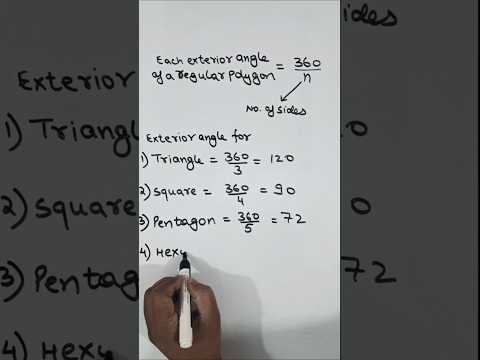 Each exterior angle
of a regular Polygon = 360/n
No. of sides
Exterior angle for
1) Triangle = 360/3 = 120
2) Square = 360/4 = 90
3) Pentagon = 360/5 = 72
4) Hex